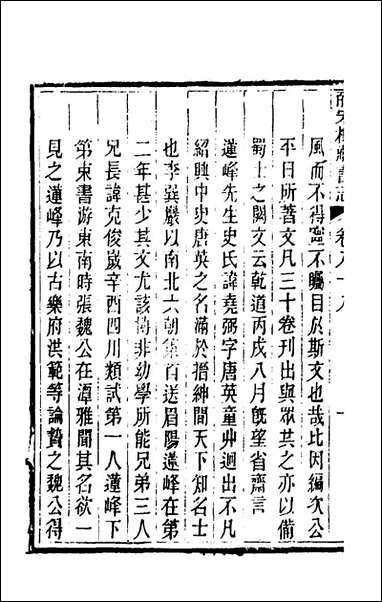 皕宋樓藏書志 卷八十八
風而不得寧不矚目於斯文也哉比因編次公
平日所著文凡三十卷刊出與眾共之亦以備
蜀士之闕文云乾道丙戌八月旣望省齋言
蓮峰先生史氏諱堯弼字唐英童丱迥出不凡
紹興中史唐英之名滿於搢紳間天下知名士
也李巽巖以南北六朝 首送眉陽蓮峰在第
二年甚少其文尤該博非幼學所能兄弟三人
兄長諱克俊嵗辛酉四川類試第一人蓮峰下
第束書游東南時張魏公在潭雅聞其名欲一
見之蓮峰乃以古樂府洪範等論贄之魏公得